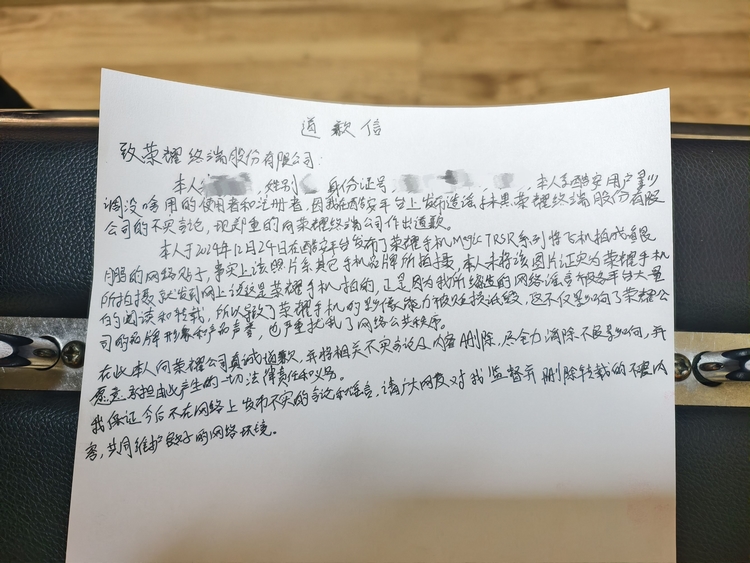 道歉信
致荣耀终端股份有限公司:
本人,性别,身份证号,,,本人系酷安用户
调没啥用的使用者和注册者,因我在酷安平台上发布造谣抹黑荣耀终端股份有限
公司的不实言论,现郑重的向荣耀终端公司作出道歉。
本人于2024年12月24日在酷安平台发布了荣耀手机Magic7RSR系列将飞机拍成
的网络贴子,事实上该照片系其它手机品牌所拍摄。本人未将该图片证实为荣耀手机
所拍摄就发到网上说这是荣耀手机拍的,正是因为我所编造的网络谣言被各平台大量
的阅读和转载,所以导致了荣耀手机的影像能力被诋毁,这不仅影响了荣耀公
司的品牌形象和产品声誉,也严重扰乱了网络公共秩序。
在此本人向荣耀公司真诚道歉,并将相关不实言论及内容删除,尽全力消除不良影响,并
愿意承担由此产生的一切法律责任和义务。
我保证今后不在网络上发布不实的言论和谣言,请广大网友对我监督并删除转载的不良内
容,共同维护良好的网络环境。